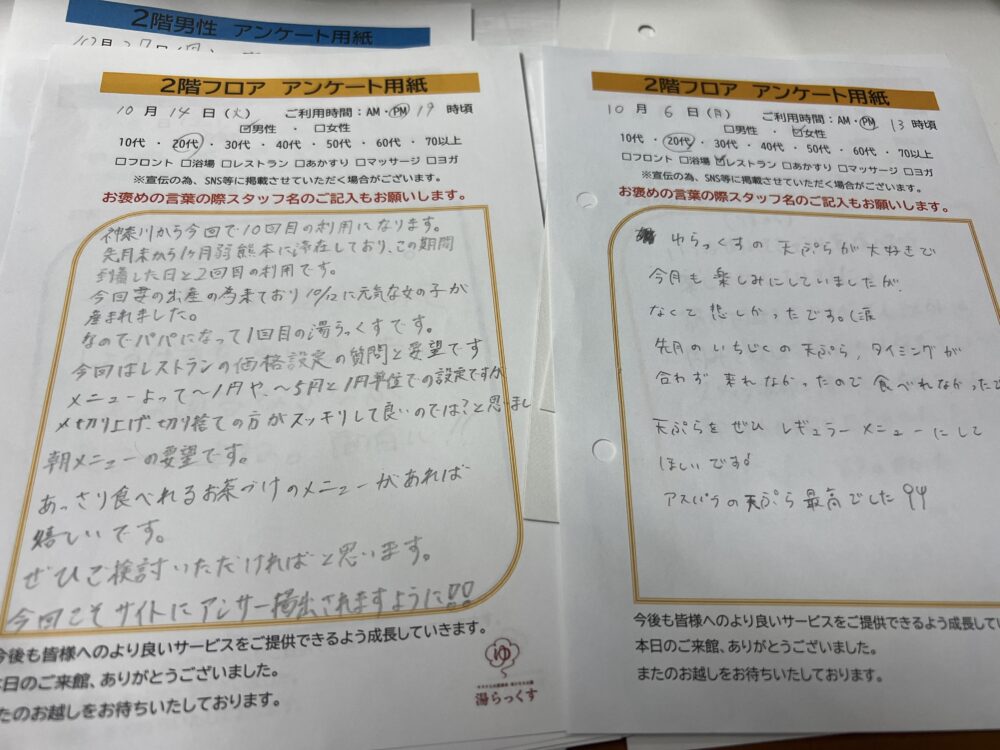 2階男性 アンケート用紙
10月27日(月)
2階フロア アンケート用紙
10月14日(火) ご利用時間:AM・PM 19時頃
☑男性 ・ □女性
10代 ・ 20代 ・ 30代 ・ 40代 ・ 50代 ・ 60代 ・ 70以上
□フロント □浴場 □レストラン □あかすり □マッサージ □ヨガ
※宣伝の為、SNS等に掲載させていただく場合がございます。
お褒めの言葉の際スタッフ名のご記入もお願いします。
神奈川から今回で10回目の利用になります。
先月末から1ヶ月弱熊本に滞在しており、この期間
到着した日と2回目の利用です。
今回妻の出産の為来ており10/12に元気な女の子が
産まれました。
なのでパパになって1回目の湯らっくすです。
今回はレストランの価格設定の質問と要望です
メニューよって〜1円や、〜5円と1円単位での設定ですが
切り上げ、切り捨ての方がスッキリして良いのでは?と思いまし
朝メニューの要望です。
あっさり食べれるお茶づけのメニューがあれば
嬉しいです。
ぜひご検討いただければと思います。
今回こそサイトにアンサー掲出されますように!!
今後も皆様へのより良いサービスをご提供できるよう成長していきます。
本日のご来館、ありがとうございました。
またのお越しをお待ちいたしております。
ゆ
湯らっくす
2階フロア アンケート用紙
10月6日(月) ご利用時間:AM・PM 13時頃
□男性 ・ ☑女性
10代 ・ 20代 ・ 30代 ・ 40代 ・ 50代 ・ 60代 ・ 70以上
□フロント □浴場 ☑レストラン □あかすり □マッサージ □ヨガ
※宣伝の為、SNS等に掲載させていただく場合がございます。
お褒めの言葉の際スタッフ名のご記入もお願いします。
ゆらっくすの 天ぷらが大好きで
今月も楽しみにしていましたが、
なくて悲しかったです。(涙
先月のいちじくの天ぷら、タイミングが
合わず来れなかったので食べれなかったで
天ぷらをぜひ レギュラーメニューにして
ほしいです!
アスパラの天ぷら最高でした
今後も皆様へのより良いサービスをご提供できるよう成長して
本日のご来館、ありがとうございました。
またのお越しをお待ちいたしております。